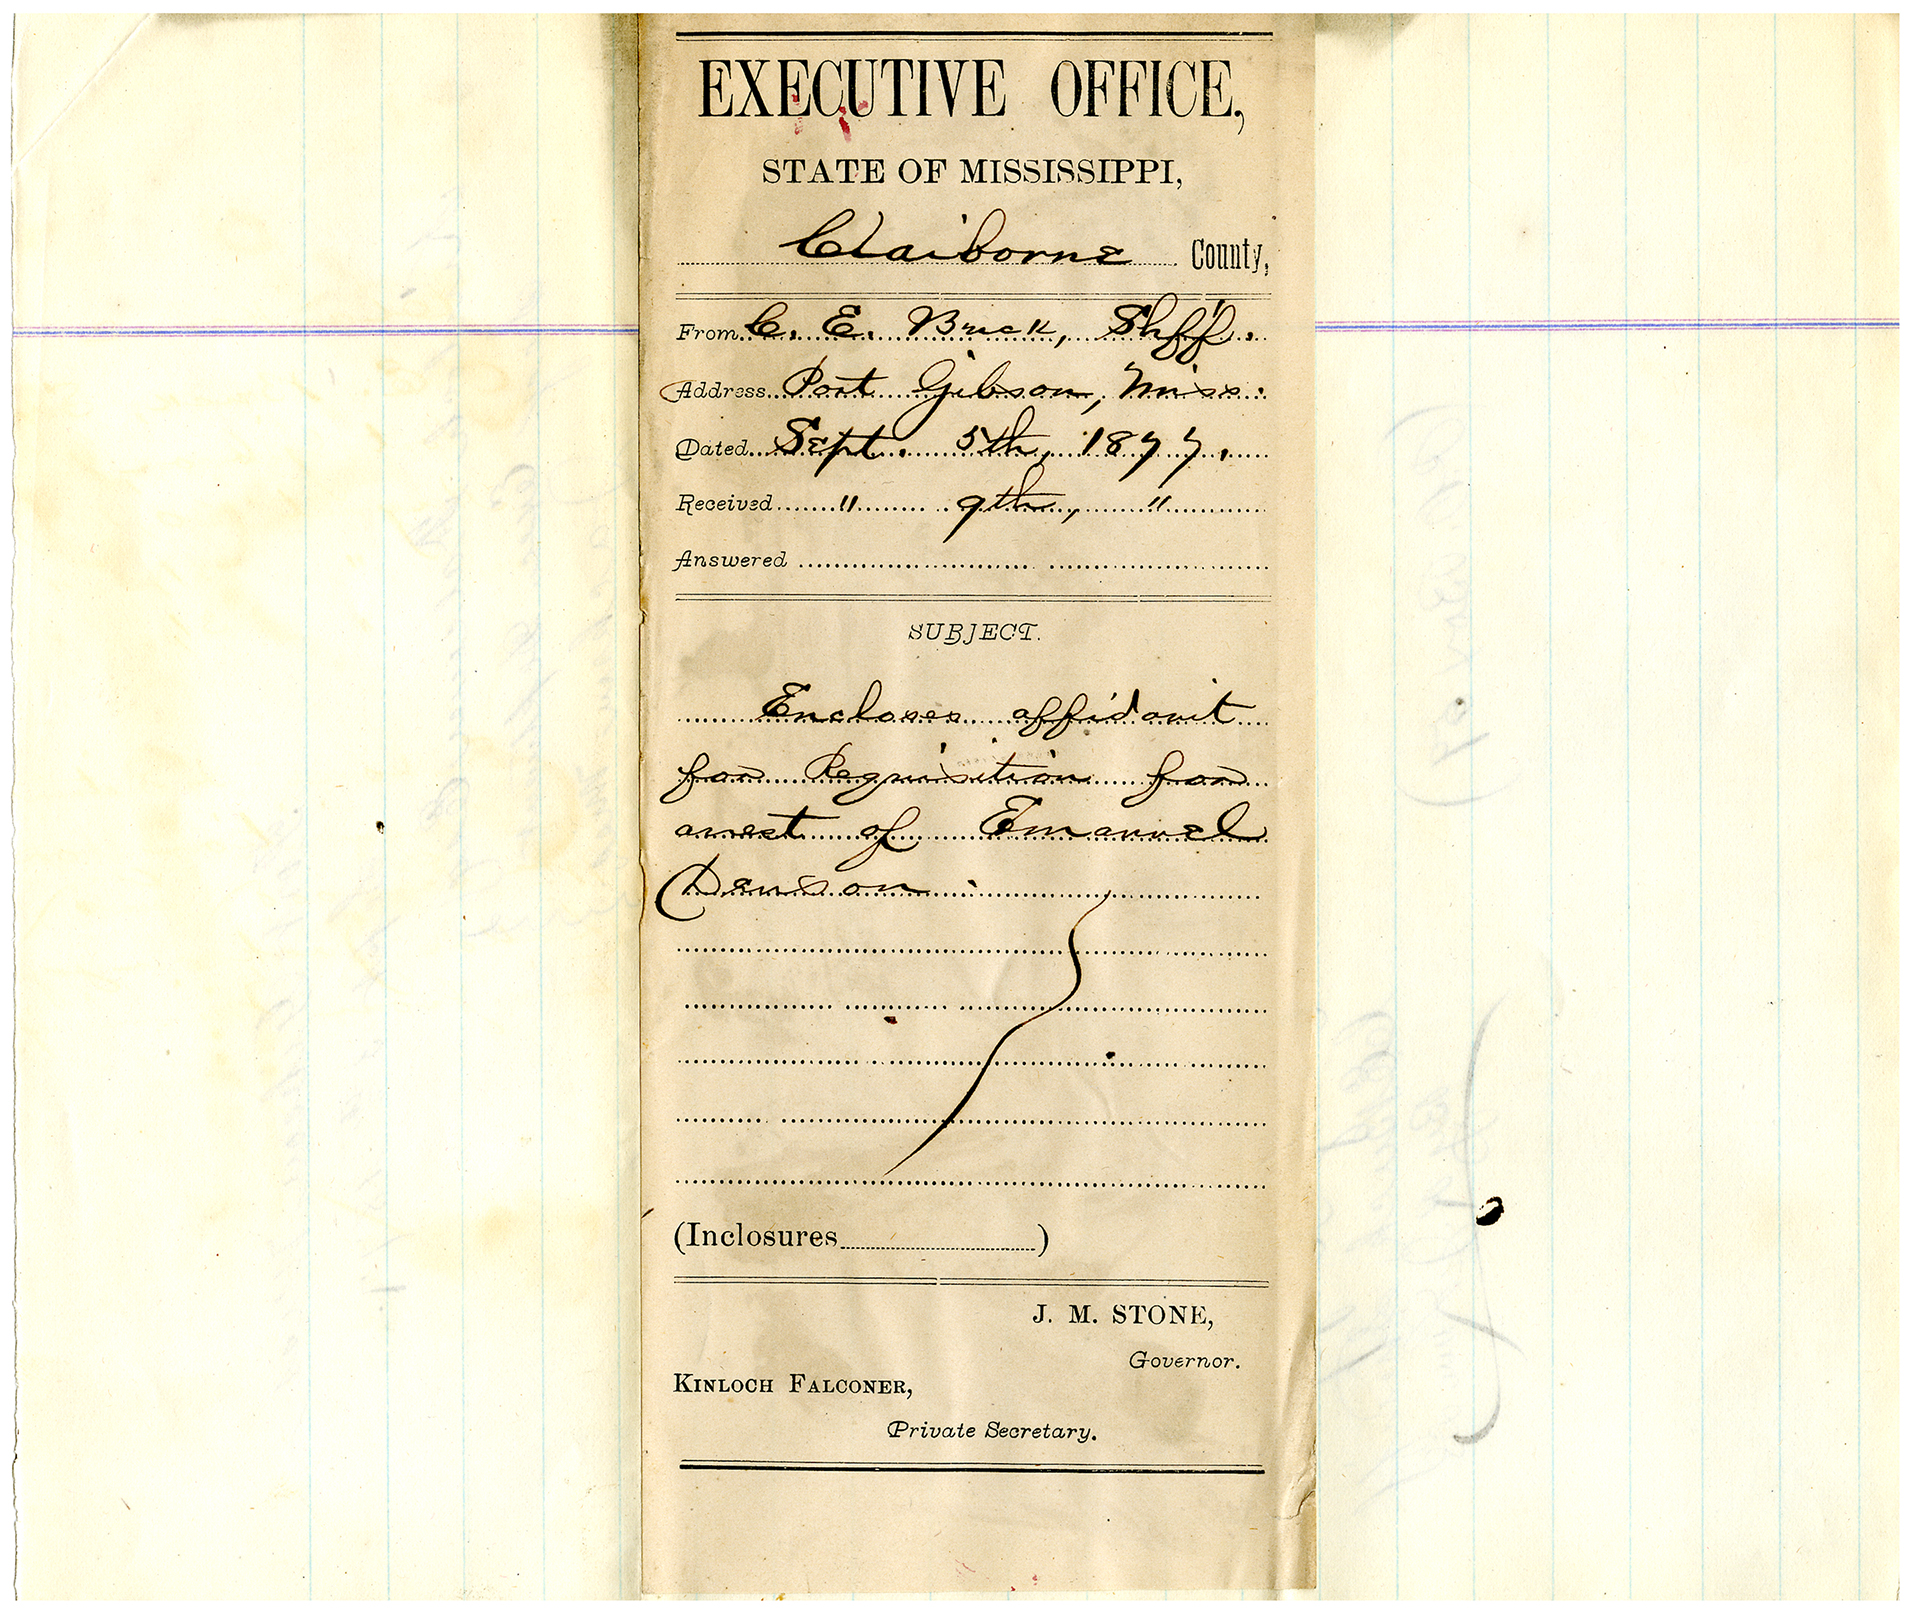 EXECUTIVE OFFICE,
STATE OF MISSISSIPPI,
Claiborne County,
From C. E. Buck, Shff.
Address Port Gibson, Miss.
Dated Sept. 5th, 1877.
Received " 9th, "
Answered
SUBJECT.
Encloses affidavit
for Requisition for
arrest of Emanuel
Denison.
(Inclosures )
J. M. STONE,
Governor.
KINLOCH FALCONER,
Private Secretary.